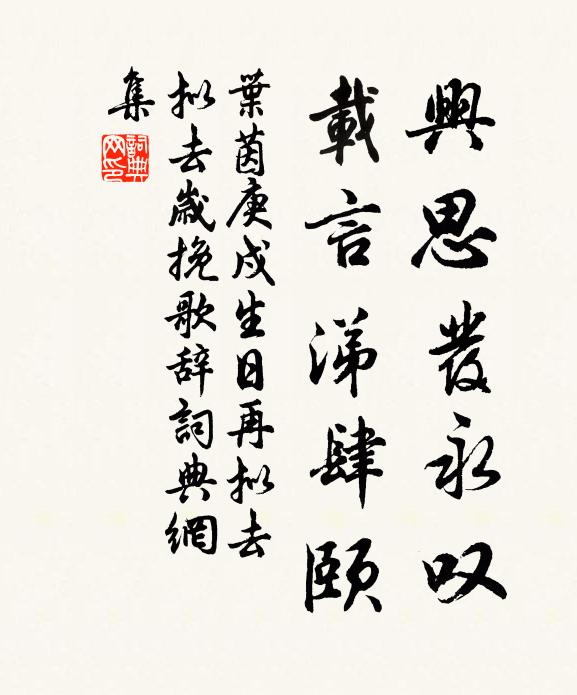 興思發永叹
載言涕肆頤
葉茵庚戌生日再拟去
拟去歲挽歌辞詞典網
集
詞典
网印